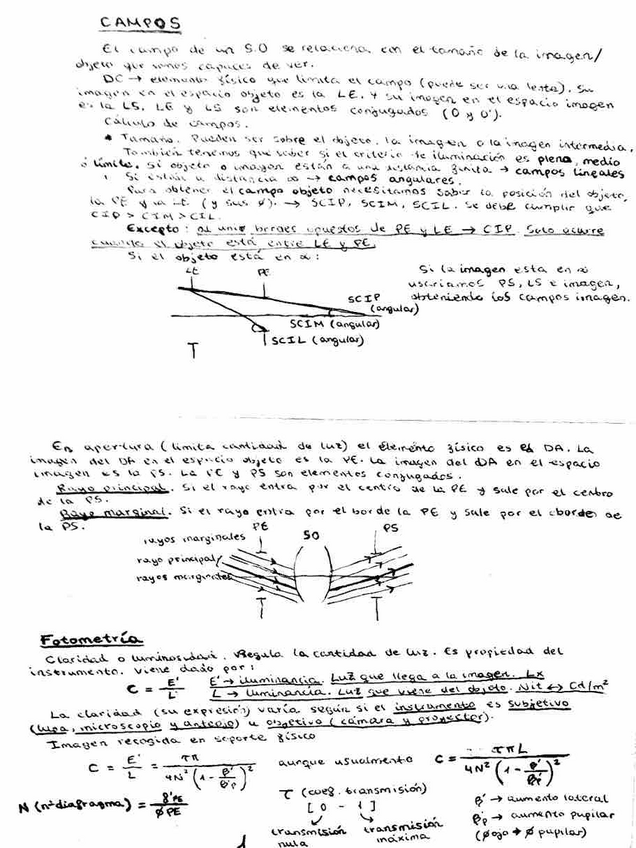 CAMPOS
El campo de un S.O se relaciona con el tamaño de la imagen/
objeto que somos capaces de ver.
DC → elemento físico que limita el campo (puede ser una lente). Su
imagen en el espacio objeto es la LE. Y su imagen en el espacio imagen
es la LS. LE y LS son elementos conjugados (O y O').
Cálculo de campos.
• Tamaño. Pueden ser sobre el objeto, la imagen o la imagen intermedia,
También tenemos que saber si el criterio de iluminación es plena, medio
o límite. Si objeto o imagen están a una distancia finita → campos lineales
Si están a distancia ∞ → campos angulares.
Para obtener el campo objeto necesitamos saber la posición del objeto,
la PE y la LE (y sus ∅). → SCIP, SCIM, SCIL. Se debe cumplir que
CIP > CIM > CIL.
Excepto: al unir bordes opuestos de PE y LE → CIP. Solo ocurre
cuando el objeto está entre LE y PE.
Si el objeto está en ∞:
LE PE
SCIP
(angular)
SCIM (angular)
SCIL (angular)
Si la imagen esta en ∞
usaríamos PS, LS e imagen,
obteniendo los campos imagen.
En apertura (limita cantidad de luz) el elemento físico es el DA. La
imagen del DA en el espacio objeto es la PE. La imagen del DA en el espacio
imagen es la PS. La PE y PS son elementos conjugados.
Rayo principal. Si el rayo entra por el centro de la PE y sale por el centro
de la PS.
Rayo marginal. Si el rayo entra por el borde de la PE y sale por el borde de
la PS.
PE SO PS
rayos marginales
rayo principal
rayos marginales
Fotometría
Claridad o luminosidad. Regula la cantidad de luz. Es propiedad del
instrumento. Viene dado por:
C = E'/L E' → iluminancia. Luz que llega a la imagen. Lx
L → luminancia. Luz que viene del objeto. Nit ↔ Cd/m²
La claridad (su expresión) varía según si el instrumento es subjetivo
(lupa, microscopio y anteojo) u objetivo (cámara y proyector).
Imagen recogida en soporte físico
C = E'/L = τπ/4N²(1 - β'/β'p)² aunque usualmente C = τπL/4N²(1 - β'/β'p)²
N (nº diafragma) = f'/∅PE
τ (coef. transmisión)
[0 - 1]
transmisión nula
transmisión máxima
β' → aumento lateral
β'p → aumento pupilar
(∅ojo → ∅ pupilar)